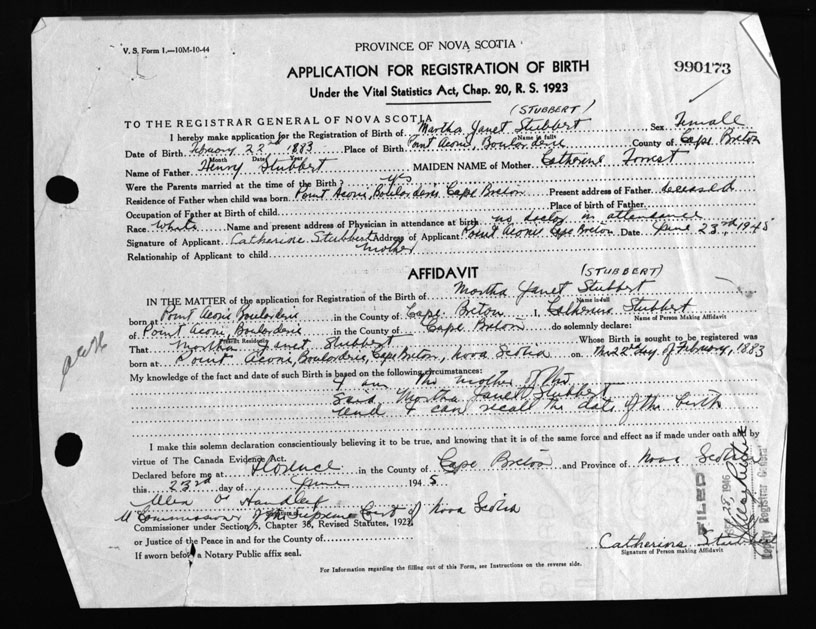 V. S. Form 1.—10M-10-44
PROVINCE OF NOVA SCOTIA
APPLICATION FOR REGISTRATION OF BIRTH
990173
Under the Vital Statistics Act, Chap. 20, R. S. 1923
(STUBBERT)
TO THE REGISTRAR GENERAL OF NOVA SCOTIA
I hereby make application for the Registration of Birth of Martha Janet Stubbert Sex Female
Name in full
Date of Birth February 22nd 1883 Place of Birth Point Aconi, Boularderie County of Cape Breton
Month Date Year
Name of Father Henry Stubbert MAIDEN NAME of Mother Catherine Forrest
Were the Parents married at the time of the Birth? yes
Residence of Father when child was born Point Aconi, Boularderie Cape Breton Present address of Father deceased
Occupation of Father at Birth of child Place of birth of Father
Race White Name and present address of Physician in attendance at birth no doctor in attendance
Signature of Applicant Catherine Stubbert Address of Applicant Point Aconi Cape Breton Date June 23rd 1945
Relationship of Applicant to child mother
AFFIDAVIT
(STUBBERT)
IN THE MATTER of the application for Registration of the Birth of Martha Janet Stubbert
Name in full
born at Point Aconi Boularderie in the County of Cape Breton I, Catherine Stubbert
Name of Person Making Affidavit
of Point Aconi, Boularderie in the County of Cape Breton do solemnly declare:
Present Residence
That Martha Janet Stubbert Whose Birth is sought to be registered was
born at Point Aconi, Boularderie, Cape Breton, Nova Scotia on this 22nd day of February, 1883
My knowledge of the fact and date of such Birth is based on the following circumstances:
I am the mother of the
said Martha Janet Stubbert
and I can recall the date of the birth
I make this solemn declaration conscientiously believing it to be true, and knowing that it is of the same force and effect as if made under oath and by
virtue of The Canada Evidence Act.
Declared before me at Florence in the County of Cape Breton and Province of Nova Scotia
this 23rd day of June 1945
A Commissioner of the Supreme Court of Nova Scotia
Commissioner under Section 5, Chapter 36, Revised Statutes, 1923
or Justice of the Peace in and for the County of
If sworn before a Notary Public affix seal.
Catherine Stubbert
Signature of Person making Affidavit
FILED
Deputy Registrar General
For Information regarding the filling out of this Form, see Instructions on the reverse side.